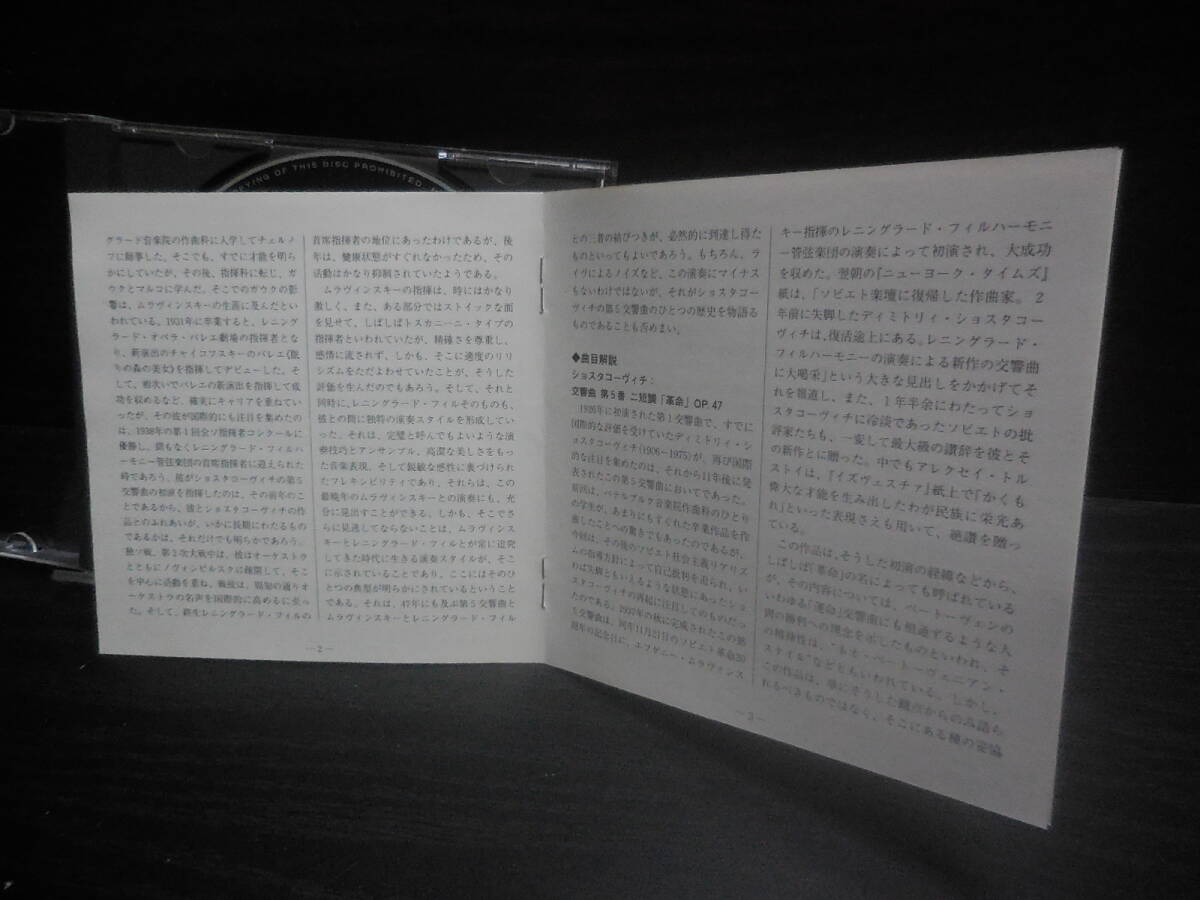 PYING OF THIS DISC PROHIBITED.
グラード音楽院の作曲科に入学してチェルノ
フに師事した。そこでも、すでに才能を明ら
かにしていたが、その後、指揮科に転じ、ガ
ウクとマルコに学んだ。そこでのガウクの影
響は、ムラヴィンスキーの生涯に及んだとい
われている。1931年に卒業すると、レニング
ラード・オペラ・バレエ劇場の指揮者とな
り、新演出のチャイコフスキーのバレエ《眠
りの森の美女》を指揮してデビューした。そ
して、相次いでバレエの新演出を指揮して成
功を収めるなど、確実にキャリアを重ねてい
ったが、その彼が国際的にも注目を集めたの
は、1938年の第1回全ソ指揮者コンクールに
優勝し、間もなくレニングラード・フィルハ
ーモニー管弦楽団の首席指揮者に迎えられた
時であろう。彼がショスタコーヴィチの第5
交響曲の初演を指揮したのは、その前年のこ
とであるから、彼とショスタコーヴィチの作
品とのふれあいが、いかに長期にわたるもの
であるかは、それだけでも明らかであろう。
独ソ戦、第2次大戦中は、彼はオーケストラ
とともにノヴィシビルスクに疎開して、そこ
を中心に活動を重ね、戦後は、周知の通りオ
ーケストラの名声を国際的に高めるに至っ
た。そして、終生レニングラード・フィルの
首席指揮者の地位にあったわけであるが、後
年は、健康状態がすぐれなかったため、その
活動はかなり抑制されていたようである。
ムラヴィンスキーの指揮は、時にはかなり
激しく、また、ある部分ではストイックな面
を見せて、しばしばトスカニーニ・タイプの
指揮者といわれていたが、精確さを尊重し、
感情に流されず、しかも、そこに適度のリリ
シズムをただよわせていたことが、そうした
評価を生んだのでもあろう。そして、それと
同時に、レニングラード・フィルそのものも、
彼との間に独特の演奏スタイルを形成してい
った。それは、完璧と呼んでもよいような演
奏技巧とアンサンブル、高潔な美しさをもっ
た音楽表現、そして鋭敏な感性に裏づけられ
たフレキシビリティであり、それらは、この
最晩年のムラヴィンスキーとの演奏にも、充
分に見出すことができる。しかも、そこでさ
らに見逃してならないことは、ムラヴィンス
キーとレニングラード・フィルとが常に追究
してきた時代に生きる演奏スタイルが、そこ
に示されていることであり、ここにはそのひ
とつの典型が明らかにされているということ
である。それは、47年にも及ぶ第5交響曲と
ムラヴィンスキーとレニングラード・フィル
—2—
との三者の結びつきが、必然的に到達し得た
ものといってもよいであろう。もちろん、ラ
イヴによるノイズなど、この演奏にマイナス
もないわけではないが、それがショスタコー
ヴィチの第5交響曲のひとつの歴史を物語る
ものであることも否めまい。
◆曲目解説
ショスタコーヴィチ：
交響曲 第5番 ニ短調「革命」OP.47
1926年に初演された第1交響曲で、すでに
国際的な評価を受けていたディミトリィ・シ
ョスタコーヴィチ(1906～1975)が、再び国際
的な注目を集めたのは、それから11年後に発
表されたこの第5交響曲においてであった。
前回は、ペテルブルク音楽院作曲科のひとり
の学生が、あまりにもすぐれた卒業作品を作
曲したことへの驚きでもあったのであるが、
今回は、その後のソビエト社会主義リアリズ
ムの指導方針によって自己批判を迫られ、い
わば失脚ともいえるような状態にあったショ
スタコーヴィチの再起に注目してのものだっ
たのである。1937年の秋に完成されたこの第
5交響曲は、同年11月21日のソビエト革命20
周年の記念日に、エフゲニー・ムラヴィンス
キー指揮のレニングラード・フィルハーモニ
ー管弦楽団の演奏によって初演され、大成功
を収めた。翌朝の『ニューヨーク・タイムズ』
紙は、「ソビエト楽壇に復帰した作曲家。2
年前に失脚したディミトリィ・ショスタコー
ヴィチは、復活途上にある。レニングラード・
フィルハーモニーの演奏による新作の交響曲
に大喝采」という大きな見出しをかかげてそ
れを報道し、また、1年半余にわたってショ
スタコーヴィチに冷淡であったソビエトの批
評家たちも、一変して最大級の讃辞を彼とそ
の新作とに贈った。中でもアレクセイ・トル
ストイは、『イズヴェスチァ』紙上で「かくも
偉大な才能を生み出したわが民族に栄光あ
れ」といった表現さえも用いて、絶讃を贈っ
ている。
この作品は、そうした初演の経緯などから、
しばしば「革命」の名によっても呼ばれている
が、その内容については、ベートーヴェンの
いわゆる「運命」交響曲にも相通ずるような人
間の勝利への理念を示したものといわれ、そ
の精神性は、“もと・ベートーヴェニアン・
スタイル”などともいわれている。しかし、
この作品は、単にそうした観点からのみ語ら
れるべきものではなく、そこにある種の妥協
—3—